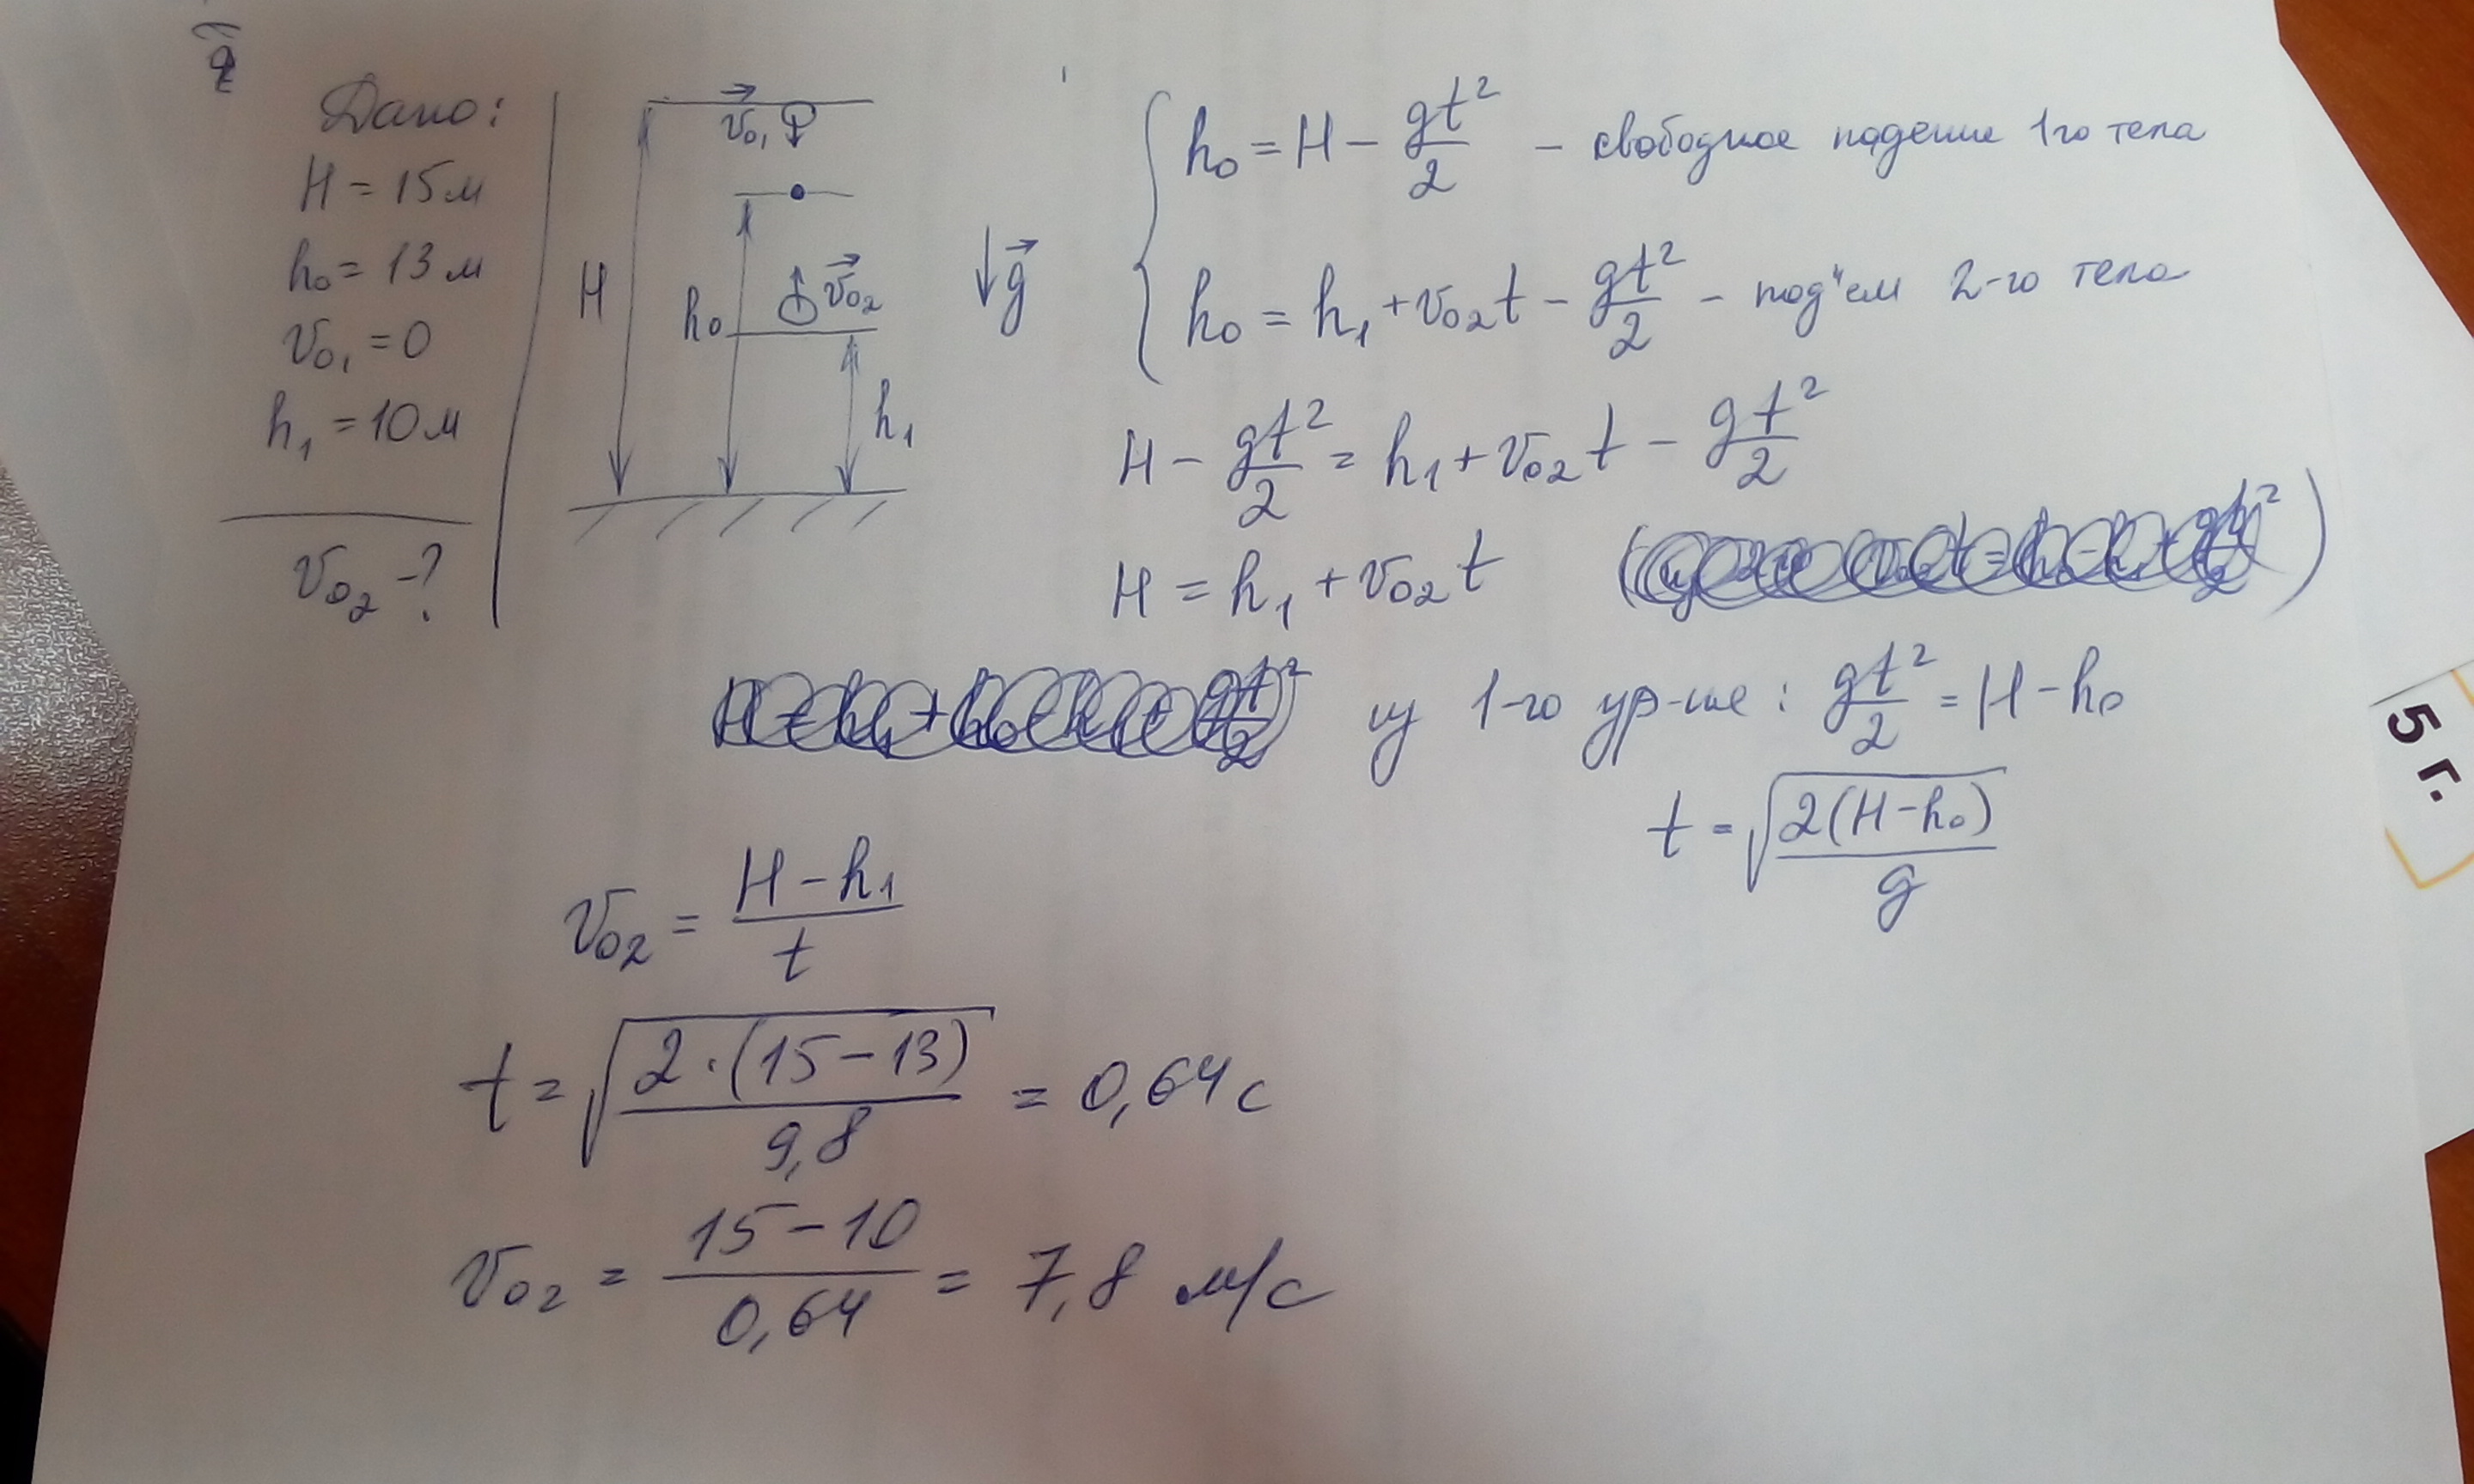 Дано:
H = 15м
h₀ = 13м
v₀₁ = 0
h₁ = 10м
v₀₂ - ?
v₀₁
H
h₀
v₀₂
h₁
g
h₀ = H - gt²/2 - свободное падение 1го тела
h₀ = h₁ + v₀₂t - gt²/2 - под"ем 2-го тела
H - gt²/2 = h₁ + v₀₂t - gt²/2
H = h₁ + v₀₂t
из 1-го ур-ние: gt²/2 = H - h₀
t = √(2(H - h₀)/g)
v₀₂ = (H - h₁)/t
t = √(2·(15-13)/9,8) = 0,64с
v₀₂ = (15-10)/0,64 = 7,8 м/с
5 г.